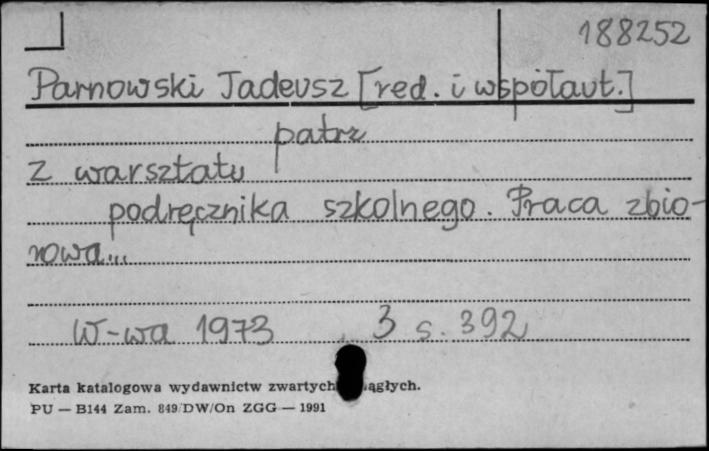 188252
Parnowski Tadeusz [red. i współaut.]
patrz
Z warsztatu
podręcznika szkolnego. Praca zbio-
rowa...
W-wa 1973 3 s. 392
Karta katalogowa wydawnictw zwartych ągłych.
PU — B144 Zam. 849/DW/On ZGG — 1991